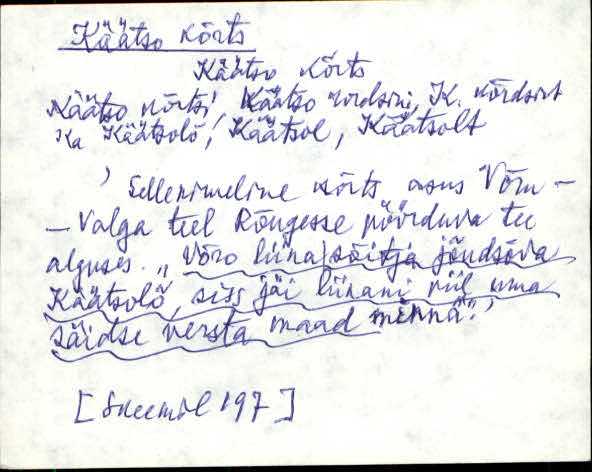 Käätso kõrts
Käätso kõrts
Käätso kõrtsi, Käätso kordsini, K. kõrdsist
ka Käätsolõ, Käätsol, Käätsolt
' Sellenimeline kõrts asus Võru –
– Valga teel Rõugesse pöörduva tee
alguses. „Võro liina sõitja jõudsõva
Käätsolõ, siss jäi liinani viil uma
säidse versta maad minnä".'
[Skeemil 197]